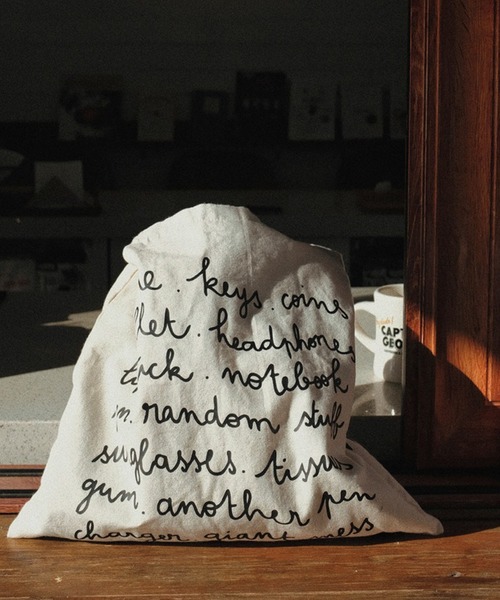 e . keys . coins
llet . headphones
tick . notebook
n . random stuff
sunglasses . tissues
gum . another pen
charger giant mess
CAPT
GEO